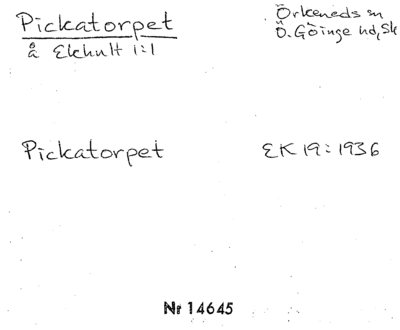 Pickatorpet
å Ekhult 1:1
Örkeneds sn
Ö. Göinge hd, Sk
Pickatorpet
EK 19:1936
Nr 14645